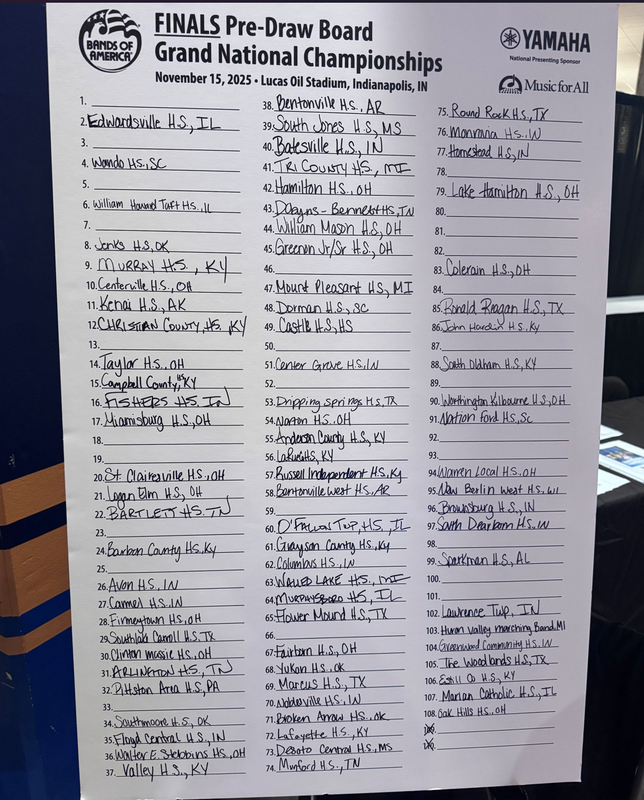 BANDS OF AMERICA
FINALS Pre-Draw Board
Grand National Championships
November 15, 2025 • Lucas Oil Stadium, Indianapolis, IN
YAMAHA
National Presenting Sponsor
Music for All
1.
2. Edwardsville H.S., IL
3.
4. Wando H.S., SC
5.
6. William Howard Taft H.S., IL
7.
8. Jenks H.S., OK
9. MURRAY H.S., KY
10. Centerville H.S., OH
11. Kenai H.S., AK
12. CHRISTIAN COUNTY H.S. KY
13.
14. Taylor H.S., OH
15. Campbell County, HS KY
16. FISHERS H.S. IN
17. Miamisburg H.S., OH
18.
19.
20. St. Clairesville H.S., OH
21. Logan Elm H.S, OH
22. BARTLETT H.S. TN
23.
24. Barbon County H.S. Ky
25.
26. Avon H.S., IN
27. Carmel H.S. IN
28. Finneytown H.S., OH
29. Southlake Carroll H.S. TX
30. Clinton massie H.S., OH
31. ARLINGTON H.S., TN
32. Pittston Area H.S., PA
33.
34. Southmoore H.S., OK
35. Floyd Central H.S., IN
36. Walter E. Stebbins H.S., OH
37. Valley H.S., KY
38. Bentonville H.S., AR
39. South Jones H.S, MS
40. Batesville H.S, IN
41. TRI COUNTY H.S., MI
42. Hamilton H.S., OH
43. Dobyns-Bennett H.S, TN
44. William Mason H.S, OH
45. Greenon Jr/Sr H.S., OH
46.
47. Mount Pleasant H.S., MI
48. Dorman H.S., SC
49. Castle H.S, HS
50.
51. Center Grove H.S., IN
52.
53. Dripping Springs H.S, TX
54. Norton H.S., OH
55. Anderson County H.S, KY
56. LaRue H.S, KY
57. Russell Independent H.S., Ky
58. Bentonville West H.S., AR
59.
60. O'Fallon Twp, H.S., IL
61. Grayson County H.S., Ky
62. Columbus H.S., IN
63. WALLED LAKE H.S., MI
64. MURPHYSBORO H.S, IL
65. Flower Mound H.S., TX
66.
67. Fairborn H.S., OH
68. Yukon H.S., OK
69. Marcus H.S., TX
70. Noblesville H.S., IN
71. Broken Arrow H.S., OK
72. Lafayette H.S., KY
73. DeSoto Central H.S., MS
74. Munford H.S., TN
75. Round Rock H.S., TX
76. Monrovia H.S., IN
77. Homestead H.S, IN
78.
79. Lake Hamilton H.S., OH
80.
81.
82.
83. Colerain H.S., OH
84.
85. Ronald Reagan H.S., TX
86. John Hardin H.S., Ky
87.
88. South Oldham H.S., KY
89.
90. Worthington Kilbourne H.S., OH
91. Nation Ford H.S., SC
92.
93.
94. Warren Local H.S., OH
95. New Berlin West H.S. WI
96. Brownsburg H.S., IN
97. South Dearborn H.S. IN
98.
99. Sparkman H.S., AL
100.
101.
102. Lawrence Twp, IN
103. Huron Valley Marching Band, MI
104. Greenwood Community H.S. IN
105. The Woodlands H.S, TX
106. Estill Co H.S., KY
107. Marian Catholic H.S., IL
108. Oak Hills H.S., OH